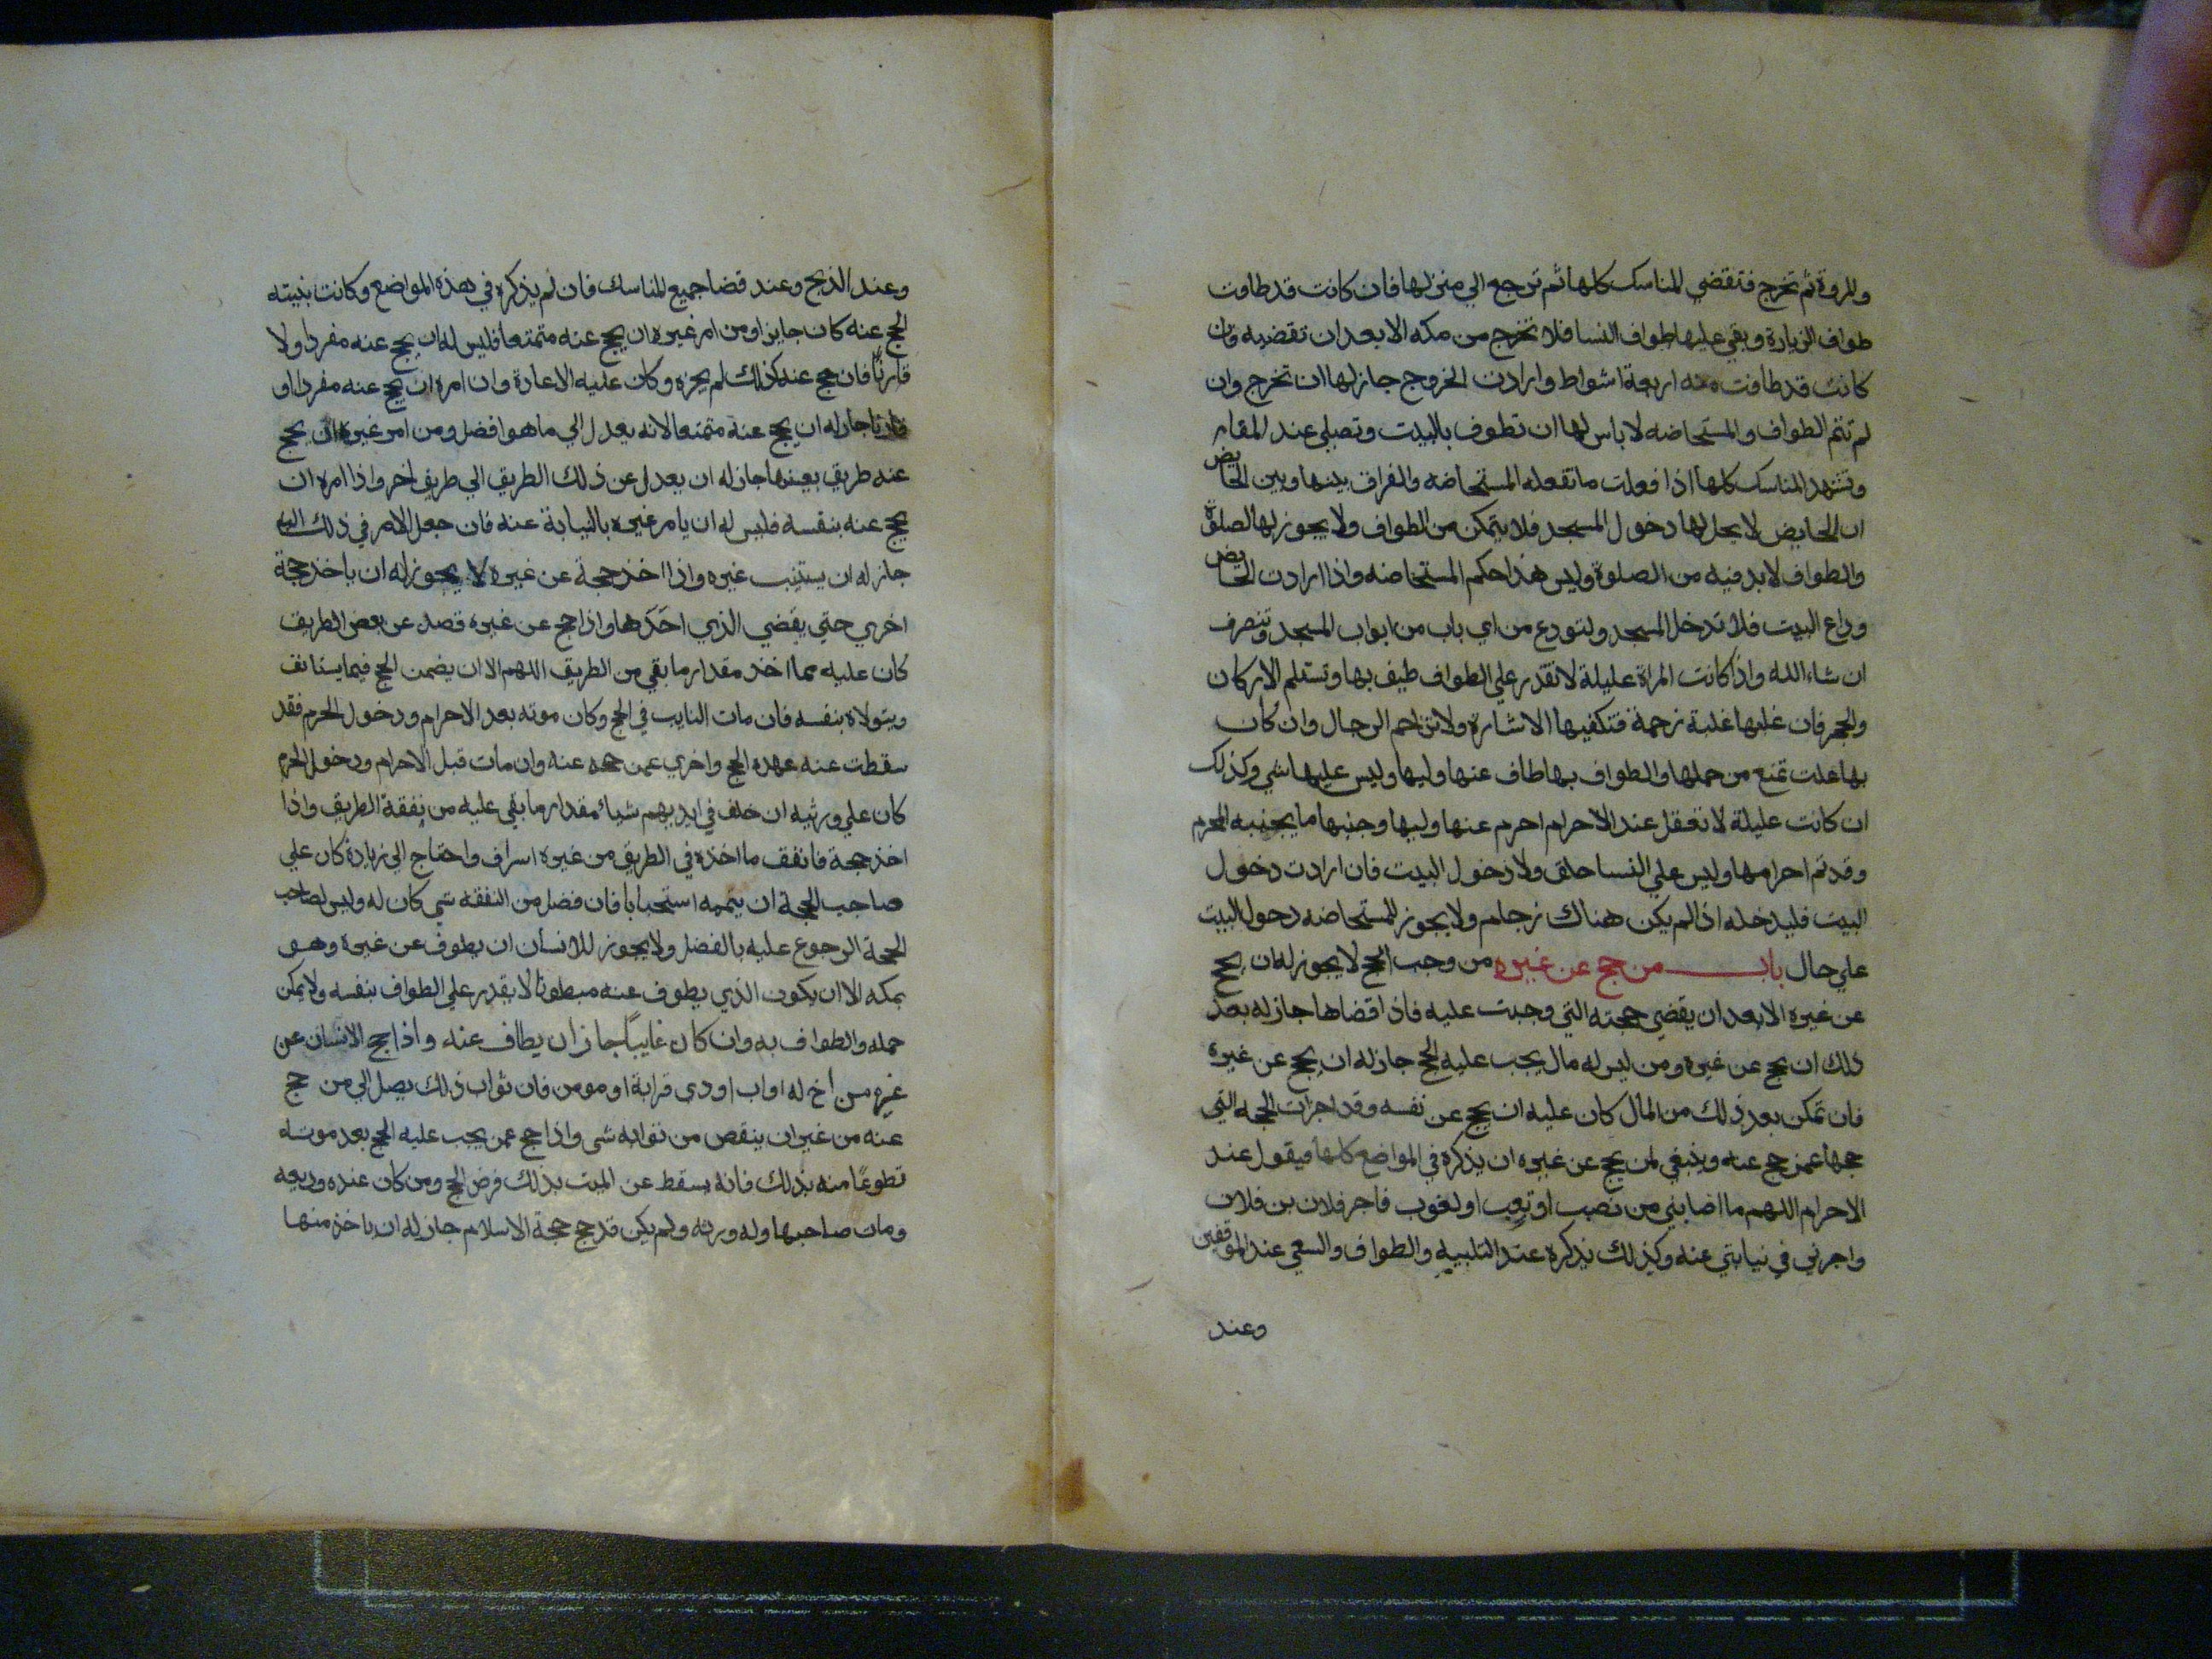 والمروة ثم تخرج فتقضي المناسك كلها ثم ترجع الي منزلها فان كانت قد طافت
طواف الزيارة وبقي عليها طواف النسا فلا تخرج من مكه الا بعد ان تقضيه وان
كانت قد طافت منه اربعة اشواط وارادت الخروج جاز لها ان تخرج وان
لم تتم الطواف والمستحاضه لا باس لها ان تطوف بالبيت وتصلي عند المقام
وتشهد المناسك كلها اذا فعلت ما تفعله المستحاضه والفراق بينها وبين الحايض
ان الحايض لا يحل لها دخول المسجد فلا يتمكن من الطواف ولا يجوز لها الصلوة
والطواف لا بد فيه من الصلوة وليس هذا حكم المستحاضه واذا ارادت الحايض
وداع البيت فلا تدخل المسجد ولتودع من اي باب من ابواب المسجد وتنصرف
ان شاء الله واذا كانت المراة عليلة لا تقدر علي الطواف طيف بها وتستلم الاركان
والحجر فان غلبها غلبة زحمة فتكفيها الاشارة ولا تزاحم الرجال وان كان
بها علت تمنع من حملها والطواف بها طاف عنها وليها وليس عليها شي وكذلك
ان كانت عليلة لا تعقل عند الاحرام احرم عنها وليها وجنبها ما يجنبه المحرم
وقد تم احرامها وليس علي النسا حلق ولا دخول البيت فان ارادت دخول
البيت فليدخله اذا لم يكن هناك زحام ولا يجوز للمستحاضه دخول البيت
علي حال باب من حج عن غيره من وجب الحج لا يجوز له ان يحج
عن غيره الا بعد ان يقضي حجته التي وجبت عليه فاذا قضاها جاز له بعد
ذلك ان يحج عن غيره ومن ليس له مال يجب عليه الحج جاز له ان يحج عن غيره
فان تمكن بعد ذلك من المال كان عليه ان يحج عن نفسه وقد اجزات الحجه التي
حجها عمن حج عنه وينبغي لمن يحج عن غيره ان يذكره في المواضع كلها فيقول عند
الاحرام اللهم ما اصابني من نصب او تعب او لغوب فاجر فلان بن فلان
واجرني في نيابتي عنه وكذلك يذكره عند التلبيه والطواف والسعي عند الموقفين
وعند
وعند الذبح وعند قضا جميع المناسك فان لم يذكره في هذه المواضع وكانت بنيته
الحج عنه كان جايزا ومن امر غيره ان يحج عنه متمتعا فليس له ان يحج عنه مفردا ولا
قارنا فان حج عنه كذلك لم يجزه وكان عليه الاعادة وان امره ان يحج عنه مفردا او
قارنا جاز له ان يحج عنه متمتعا لانه يعدل الي ما هو افضل ومن امر غيره ان يحج
عنه طريق بعينها جاز له ان يعدل عن ذلك الطريق الي طريق اخر واذا امره ان
يحج عنه بنفسه فليس له ان يامر غيره بالنيابة عنه فان جعل الامر في ذلك اليه
جاز له ان يستنيب غيره واذا اخذ حجة عن غيره لا يجوز له ان ياخذ حجة
اخري حتي يقضي الذي اخذها واذا حج عن غيره فصد عن بعض الطريق
كان عليه مما اخذ مقدار ما بقي من الطريق اللهم الا ان يضمن الحج فيما يستانف
ويتولاه بنفسه فان مات النايب في الحج وكان موته بعد الاحرام ودخول الحرم فقد
سقطت عنه عهدة الحج واخري عمن حجه عنه وان مات قبل الاحرام ودخول الحرم
كان علي ورثيه ان خلف في ايديهم شيا مقدار ما بقي عليه من نفقة الطريق واذا
اخذ حجة فانفق ما اخذه في الطريق من غيره اسراف واحتاج الي زيادة كان علي
صاحب الحجة ان يتممه استحبابا فان فضل من النفقه شي كان له وليس لصاحب
الحجة الرجوع عليه بالفضل ولا يجوز للانسان ان يطوف عن غيره وهو
بمكه الا ان يكون الذي يطوف عنه مبطونا لا يقدر علي الطواف بنفسه ولا يمكن
حمله والطواف به وان كان غايبا جاز ان يطاف عنه واذا حج الانسان عن
غيره من اخ له او اب او دي قرابة او مومن فان ثواب ذلك يصل الي من حج
عنه من غير ان ينقص من ثوابه شي واذا حج عمن يجب عليه الحج بعد موته
تطوعًا منه بذلك فانه يسقط عن الميت بذلك فرض الحج ومن كان عنده وديعه
ومات صاحبها وله ورثه ولم يكن قد حج حجة الاسلام جاز له ان ياخذ منها